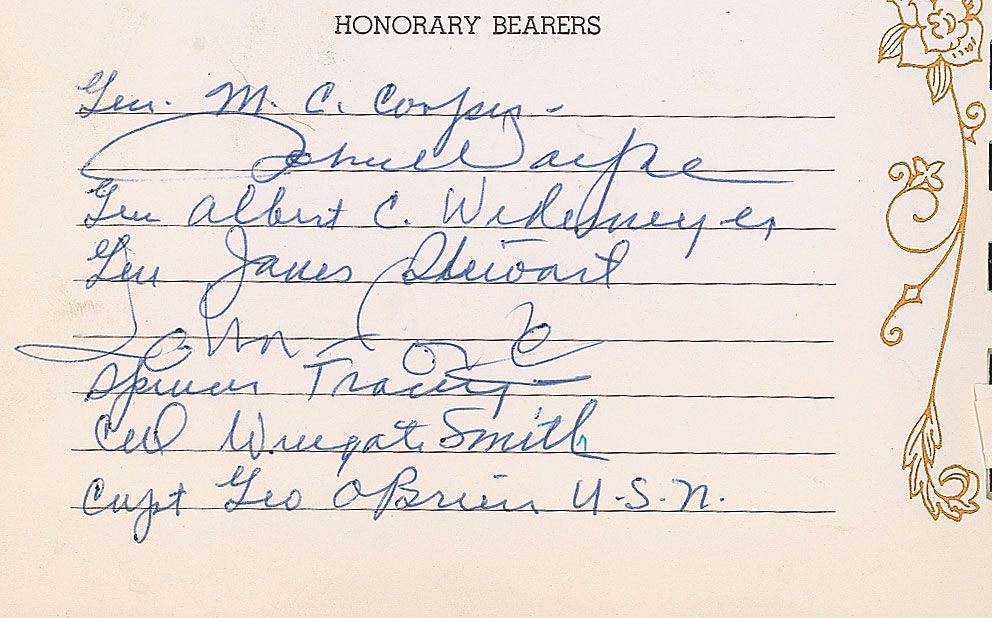 HONORARY BEARERS
Gen. M. C.
John Wayne
Gen Albert C. Wedemeyer
Gen James Stewart
John Ford
Spencer Tracy
Wingate Smith
Capt Geo OBrien U.S.N.